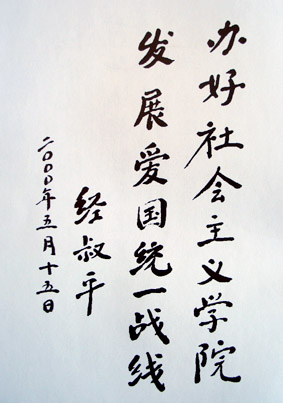 办好社会主义学院
发展爱国统一战线
经叔平
二〇〇〇年五月十五日